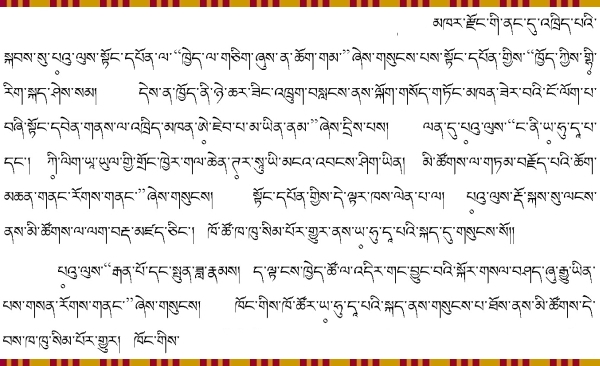 མཁར་རྫོང་གི་ནང་དུ་འཁྲིད་པའི་
སྐབས་སུ་པཱུའུ་ལུས་སྟོང་དཔོན་ལ་“ཁྱེད་ལ་གཅིག་ཞུས་ན་ཆོག་གམ་”ཞེས་གསུངས་པས་སྟོང་དཔོན་གྱིས་“ཁྱོད་ཀྱིས་གྷྲི་
རིག་སྐད་ཤེས་སམ། དེས་ན་ཁྱོད་ནི་ཉེ་ཆར་ཟིང་འཁྲུག་བསླངས་ནས་ལྐོག་གསོད་གཏོང་མཁན་ཟེར་བའི་ངོ་ལོག་པ་
བཞི་སྟོང་དབེན་གནས་ལ་འཁྲིད་མཁན་ཨེ་ཇེབ་པ་མ་ཡིན་ནམ་”ཞེས་དྲིས་པས། ལན་དུ་པཱུའུ་ལུས་“ང་ནི་ཡུ་ཧུ་དཱ་པ་
དང་། ཀི་ལིག་ཡཱ་ཡུལ་གྱི་གྲོང་ཁྱེར་གལ་ཆེན་ཏར་སཱུ་ཡི་མངའ་འབངས་ཤིག་ཡིན། མི་ཚོགས་ལ་གཏམ་བརྗོད་པའི་ཆོག་
མཆན་གནང་རོགས་གནང་”ཞེས་གསུངས། སྟོང་དཔོན་གྱིས་དེ་ལྟར་ཁས་ལེན་པ་ལ། པཱུའུ་ལུས་རྡོ་སྐས་སུ་ལངས་
ནས་མི་ཚོགས་ལ་ལག་བརྡ་མཛད་ཅིང་། ཁོ་ཚོ་ཁ་ཁུ་སིམ་པོར་གྱུར་ནས་ཡུ་ཧུ་དཱ་པའི་སྐད་དུ་གསུངས་སོ།།
པཱུའུ་ལུས་“རྒན་པོ་དང་སྤུན་ཟླ་རྣམས། ད་ལྟ་ངས་ཁྱེད་ཚོ་ལ་འདིར་གང་བྱུང་བའི་སྐོར་གསལ་བཤད་ཞུ་རྒྱུ་ཡིན་
པས་གསན་རོགས་གནང་”ཞེས་གསུངས། ཁོང་གིས་ཁོ་ཚོར་ཡུ་ཧུ་དཱ་པའི་སྐད་ནས་གསུངས་པ་ཐོས་ནས་མི་ཚོགས་དེ་
བས་ཁ་ཁུ་སིམ་པོར་གྱུར། ཁོང་གིས་